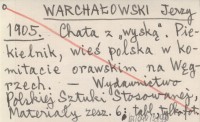 WARCHAŁOWSKI Jerzy
1905. Chata z „wyską". Pie-
kielnik, wieś polska w ko-
mitacie orawskim na Wę-
grzech. — Wydawnictwo
Polskiej Sztuki Stosowanej,
Materiały zesz. 6, tabl.